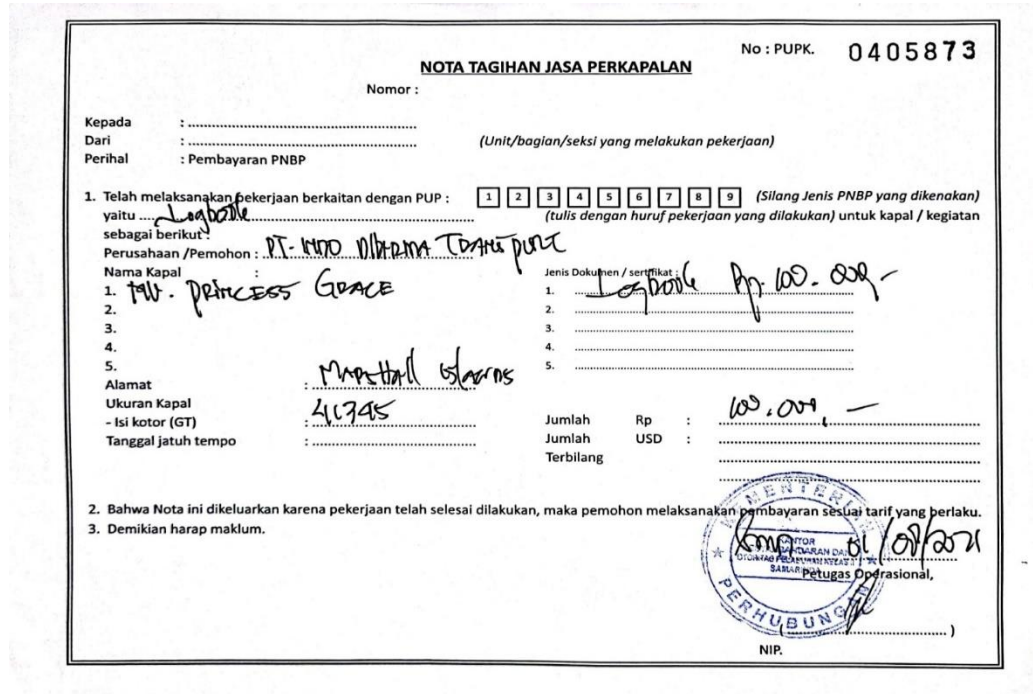 No : PUPK. 0405873
NOTA TAGIHAN JASA PERKAPALAN
Nomor :
Kepada : ....................
Dari : ....................
(Unit/bagian/seksi yang melakukan pekerjaan)
Perihal : Pembayaran PNBP
1. Telah melaksanakan pekerjaan berkaitan dengan PUP : 1 2 3 4 5 6 7 8 9 (Silang Jenis PNBP yang dikenakan)
yaitu Logbook (tulis dengan huruf pekerjaan yang dilakukan) untuk kapal / kegiatan
sebagai berikut :
Perusahaan /Pemohon : PT. INDO DHARMA TRANSPORT
Nama Kapal :
1. MV. PRINCESS GRACE
2.
3.
4.
5.
Jenis Dokumen / sertifikat :
1. Logbook Rp. 100.000,-
2. ....................
3. ....................
4. ....................
5. ....................
Alamat : Marshall Islands
Ukuran Kapal
- Isi kotor (GT) :
Tanggal jatuh tempo : ....................
Jumlah Rp : 100.000,-
Jumlah USD : ....................
Terbilang ....................
2. Bahwa Nota ini dikeluarkan karena pekerjaan telah selesai dilakukan, maka pemohon melaksanakan pembayaran sesuai tarif yang berlaku.
3. Demikian harap maklum.
KEMENTERIAN PERHUBUNGAN
KANTOR
SAMARINDA
Petugas Operasional,
(....................)
NIP.